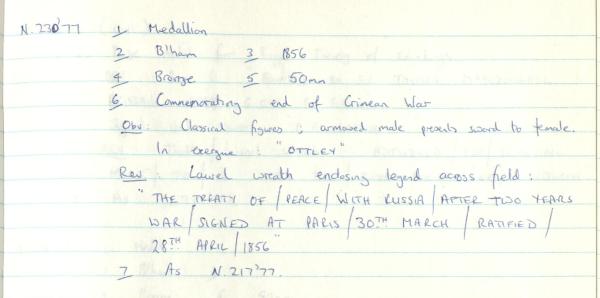 N.230'77 1 Medallion
2 B'ham 3 1856
4 Bronze 5 50mm
6 Commemorating end of Crimean War
Obv: Classical figures; armoured male presents sword to female.
In exergue: "OTTLEY"
Rev: Laurel wreath enclosing legend across field:
"THE TREATY OF / PEACE / WITH RUSSIA / AFTER TWO YEARS
WAR / SIGNED AT PARIS / 30TH MARCH / RATIFIED /
28TH APRIL / 1856"
7 As N.217'77.